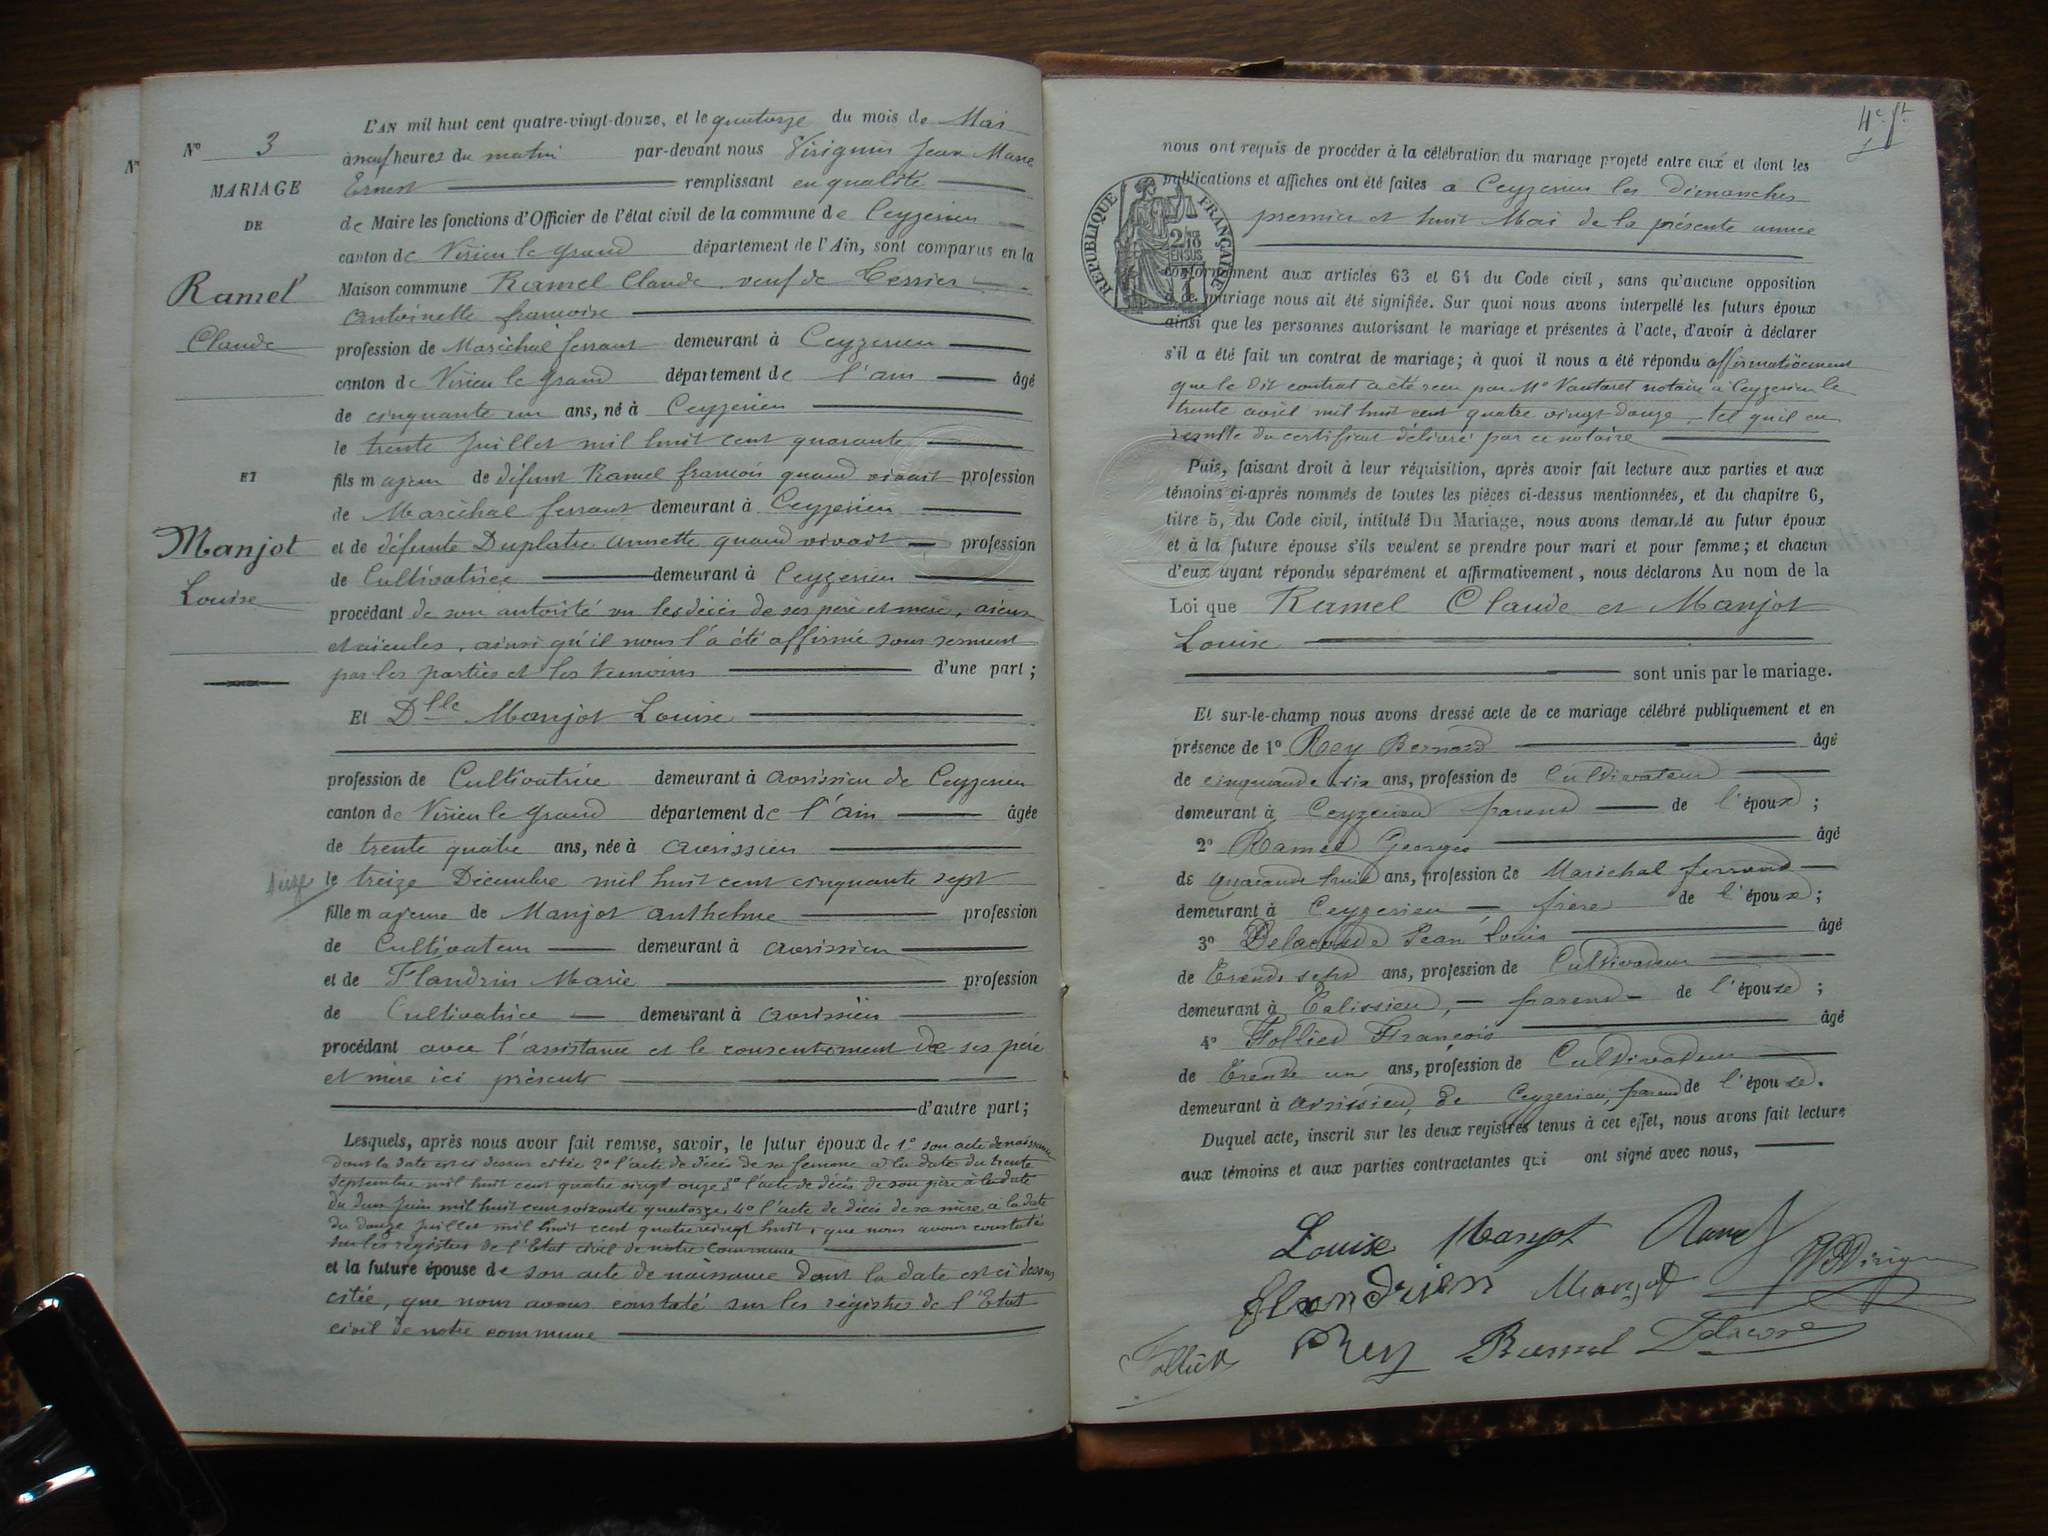 N° 3
MARIAGE
DE
Ramel
Claude
ET
Manjot
Louise
L'AN mil huit cent quatre-vingt-douze, et le quatorze du mois de Mai
à neuf heures du matin par-devant nous Virignin Jean Marie
Ernest remplissant en qualité
de Maire les fonctions d'Officier de l'état civil de la commune de Ceyzerieu
canton de Virieu le Grand département de l'Ain, sont comparus en la
Maison commune Ramel Claude, veuf de Tessier
Antoinette françoise
profession de Maréchal ferrant demeurant à Ceyzerieu
canton de Virieu le Grand département de l'ain âgé
de cinquante un ans, né à Ceyzerieu
le trente Juillet mil huit cent quarante
fils majeur de défunt Ramel françois quand vivait profession
de Maréchal ferrant demeurant à Ceyzerieu
et de défunte Duplatre annette quand vivait profession
de Cultivatrice demeurant à Ceyzerieu
procédant de son autorité vu les décès de ses père et mère, aïeux
et aïeules, ainsi qu'il nous l'a été affirmé sous serment
par les parties et les témoins d'une part ;
Et Dlle Manjot Louise
profession de Cultivatrice demeurant à avrissieu de Ceyzerieu
canton de Virieu le Grand département de l'Ain âgée
de trente quatre ans, née à avrissieu
le treize Décembre mil huit cent cinquante sept
fille majeure de Manjot anthelme profession
de Cultivateur demeurant à avrissieu
et de Flandrin Marie profession
de Cultivatrice demeurant à avrissieu
procédant avec l'assistance et le consentement de ses père
et mère ici présents
d'autre part ;
Lesquels, après nous avoir fait remise, savoir, le futur époux de 1° son acte de naissance
dont la date est ci dessus citée 2° l'acte de décès de sa femme à la date du trente
septembre mil huit cent quatre vingt onze 3° l'acte de décès de son père à la date
du deux Juin mil huit cent soixante quatorze, 4° l'acte de décès de sa mère, à la date
du douze Juillet mil huit cent quatre vingt huit, que nous avons constaté
sur les régistres de l'Etat civil de notre commune
et la future épouse de son acte de naissance dont la date est ci dessus
citée, que nous avons constaté sur les régistres de l'Etat
civil de notre commune
4e ft
nous ont requis de procéder à la célébration du mariage projeté entre eux et dont les
publications et affiches ont été faites a Ceyzerieu les dimanches
premier et huit Mai de la présente année
RÉPUBLIQUE FRANÇAISE
2/10 EN SUS
conformément aux articles 63 et 64 du Code civil, sans qu'aucune opposition
à ce mariage nous ait été signifiée. Sur quoi nous avons interpellé les futurs époux
ainsi que les personnes autorisant le mariage et présentes à l'acte, d'avoir à déclarer
s'il a été fait un contrat de mariage ; à quoi il nous a été répondu affirmativement
que le dit contrat a été recu par Me Vautaret notaire à Ceyzerieu le
trente avril mil huit cent quatre vingt douze, tel qu'il en
résulte du certificat délivré par ce notaire
Puis, faisant droit à leur réquisition, après avoir fait lecture aux parties et aux
témoins ci-après nommés de toutes les pièces ci-dessus mentionnées, et du chapitre 6,
titre 5, du Code civil, intitulé Du Mariage, nous avons demandé au futur époux
et à la future épouse s'ils veulent se prendre pour mari et pour femme ; et chacun
d'eux ayant répondu séparément et affirmativement, nous déclarons Au nom de la
Loi que Ramel Claude et Manjot
Louise
sont unis par le mariage.
Et sur-le-champ nous avons dressé acte de ce mariage célébré publiquement et en
présence de 1° Rey Bernard âgé
de cinquante six ans, profession de Cultivateur
demeurant à Ceyzerieu parent de l'époux ;
2° Ramel Georges âgé
de quarante huit ans, profession de Maréchal ferrand
demeurant à Ceyzerieu, frère de l'époux ;
3° Delacoste Jean Louis âgé
de Trente sept ans, profession de Cultivateur
demeurant à Talissieu, parent de l'épouse ;
4° Folliet François âgé
de Trente un ans, profession de Cultivateur
demeurant à avrissieu, de Ceyzerieu, parent de l'épouse.
Duquel acte, inscrit sur les deux registres tenus à cet effet, nous avons fait lecture
aux témoins et aux parties contractantes qui ont signé avec nous,
Louise Manjot Ramel
Flandrien Manjot
Folliet Rey Ramel Delacoste